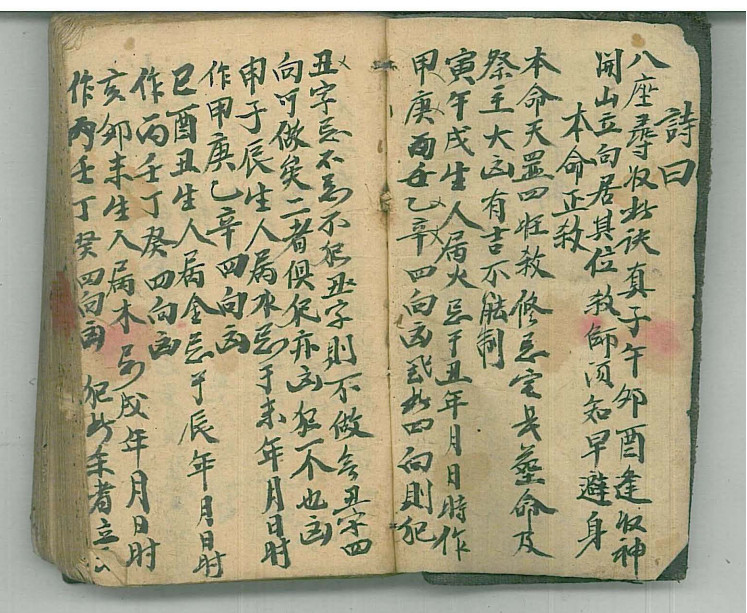 詩曰
八座尋收此诀真子午卯酉逢收神
開山立向居其位教師须知早避身
本命正殺
本命天罡四旺殺修忌宅长墓命及
祭主大凶有吉不能制
寅午戌生人屬火忌于丑年月日時作
甲庚丙壬乙辛四向凶 此四向則犯
丑字忌不 不犯丑字則不做 丑字四
向可做矣二者俱犯亦凶犯一不也凶
申子辰生人屬水忌于未年月日时
作甲庚乙辛四向凶
巳酉丑生人屬金忌于辰年月日时
作丙壬丁癸四向凶
亥卯未生人屬木忌 戌年月日时
作丙壬丁癸四向凶 犯此 者立